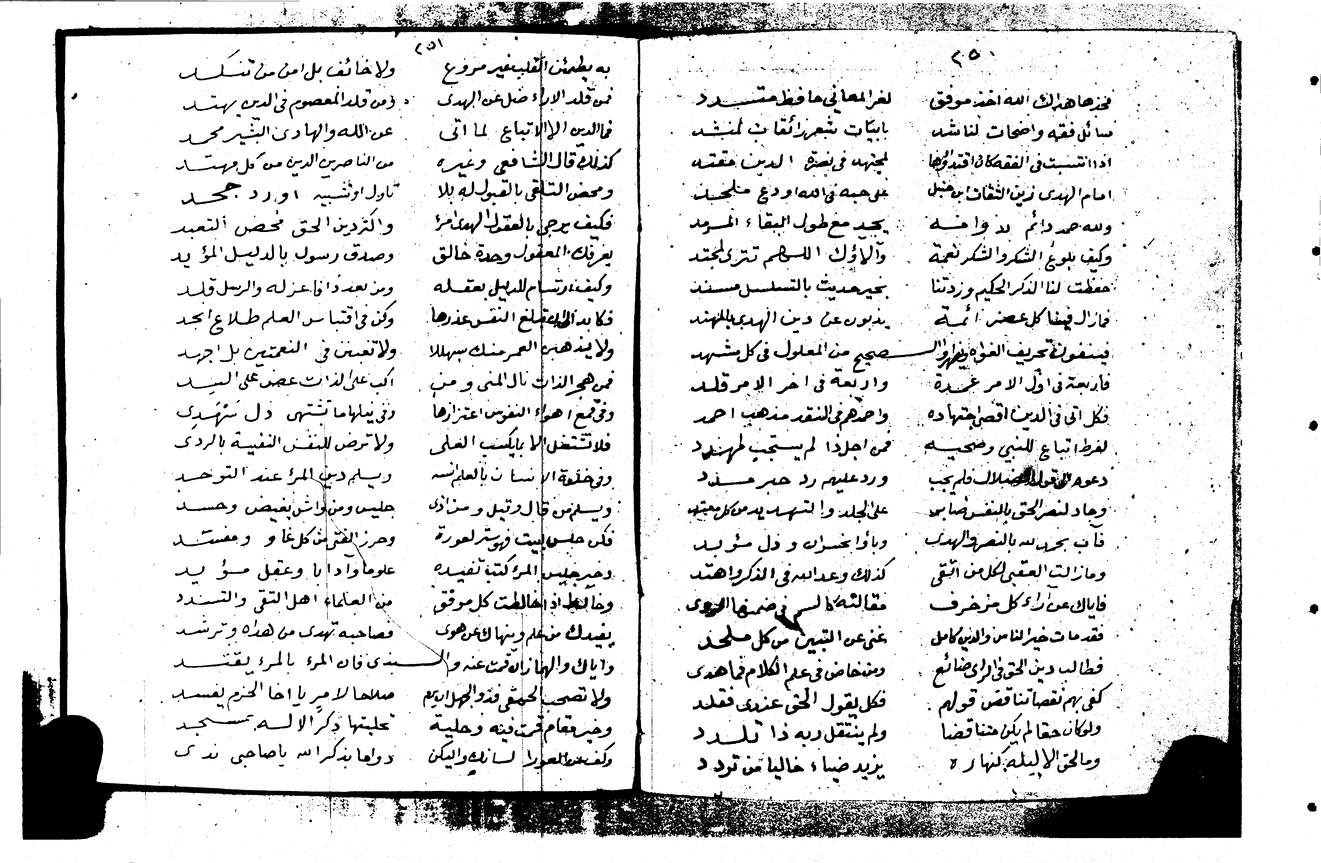 ٢٥١
فخزها هداك الله اخذ موفق لغر المعاني حافظ متسدد
مسائل فقه واضحات لناشد بابيات شعر رائقات لمنشد
اذا انتسبت في الفقه كان اقتداؤها لمجتهد في نصرة الدين مقتد
امام الهدى زين الثقات ابن حنبل على حبه في الله اودع ملحد
ولله حمد دائم بدوامه يجدد مع طول البقاء المسرمد
وكيف بلوغ الشكر والشكر نعمة وآلاؤك اللهم تترى لمجتد
حفظت لنا الذكر الحكيم وزدتنا بخير حديث بالتسلسل مسند
فما زال فينا كل عصر ائمة يذبون عن دين الهدى بالمهند
فينفون تحريف الغواة الصحيح من المعلول في كل مشهد
فاربعة في اول الامر عمدة واربعة في اخر الامر قلد
فكل اتى في الدين اقصى اجتهاده واحمدهم في النقد مذهب احمد
لفرط اتباع للنبي وصحبه فمن اجل ذا لم يستجب لمهدد
دعوه الضلال فلم يجب ورد عليهم رد حبر مسدد
وجاد لنصر الحق بالنفس صابرا على الجلد والتهديد من كل معتد
فآب بحمد لله بالنصر والهدى وباؤا بخسران وذل مؤبد
وما زالت العقبى لكل من اتقى كذلك وعد الله في الذكر واهتد
فاياك عن آراء كل مزخرف مقالته كالسم في ضمنها الردي
فقد مات خير الناس والدين كامل غني عن التبيين من كل ملحد
فطالب دين الحق في الراي ضائع ومن خاض في علم الكلام فما هدى
كفى بهم نقصا تناقض قولهم فكل يقول الحق عندي فقلد
ولو كان حقا لم يكن متناقضا ولم ينتقل ربه ذا تلدد
وما الحق الا ليله كنهاره يزيد ضياء خاليا من تردد
٢٥١
به يطمئن القلب غير مروع ولا خائف بل امن من تنكد
فمن قلد الاراء ضل عن الهدى ومن قلد المعصوم في الدين يهتد
فما الدين الا الاتباع لما اتى عن الله والهادي البشير محمد
كذلك قال الشافعي وغيره من الناصرين الدين من كل مهتد
ومحض التلقي بالقبول له بلا تاول او تشبيه او رد جحد
فكيف يرجى بالعقول الهدى امرؤ واكثر دين الحق محض التعبد
يعرفك المعقول وحدة خالق وصدق رسول بالدليل المؤيد
وكيف ارتسام للدليل بعقله ومن بعد ذا فاعزله والرسل قلد
فكابد الى ان تبلغ النفس عذرها وكن في اقتباس العلم طلاع انجد
ولا يذهبن العمر منك سبهللا ولا تغبنن في النعمتين بل اجهد
فمن هجر اللذات نال المنى ومن اكب على اللذات عض على اليد
وفي قمع اهواء النفوس اعتزازها وفي نيلها ما تشتهي ذل سرمدي
فلا تشتغل الا بما يكسب العلى ولا ترض للنفس النفيسة بالردى
وفي خلوة الانسان بالعلم انسه ويسلم دين المرء عند التوحد
ويسلم من قال وقيل ومن اذى جليس ومن واش بغيض وحسد
فكن حلس بيت فهو ستر لعورة وحرز الفتى من كل غاو ومفسد
وخير جليس المرء كتب تفيده علوما وآدابا وعقل مؤيد
وخالط اذا خالطت كل موفق من العلماء اهل التقى والتسدد
يفيدك من علم وينهاك عن هوى فصاحبه تهدى من هداه وترشد
واياك والهماز ان قمت عنه والبذي فان المرء بالمرء يقتد
ولا تصحب الحمقى فذو الجهل ان يرم صلاحا لامر يا اخا الحزم يفسد
وخير مقام قمت فيه وحلية تحليتها ذكر الاله بمسجد
وكف عن العورا لسانك وليكن دواما بذكر الله يا صاحبي ندى